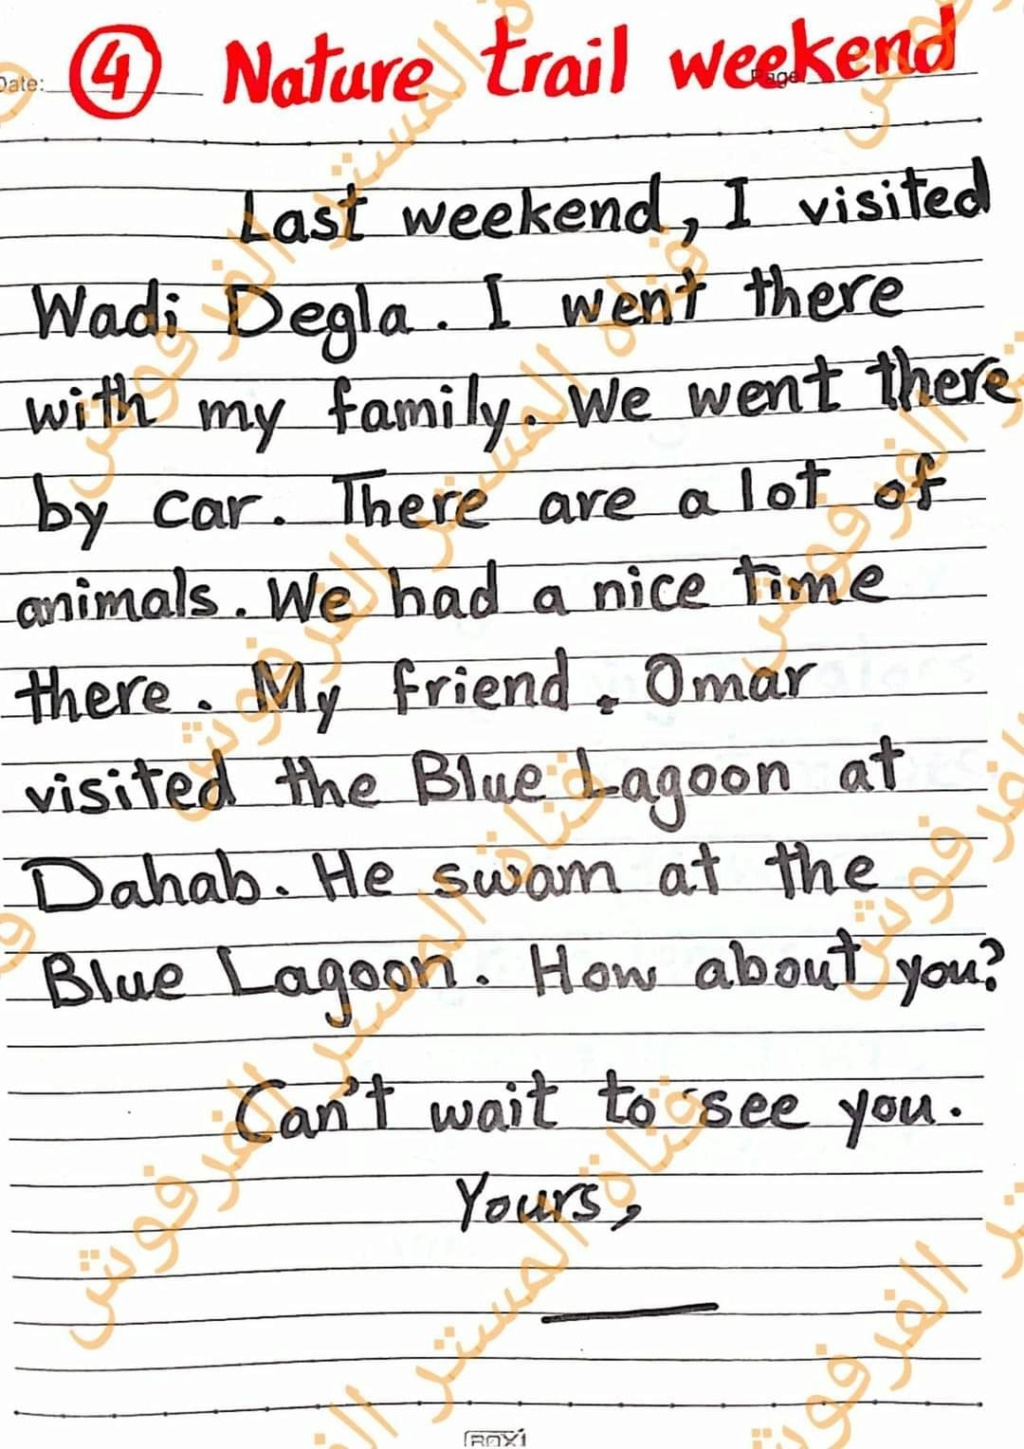 Date: ④ Nature trail weekend
Page
Last weekend, I visited
Wadi Degla. I went there
with my family. We went there
by car. There are a lot of
animals. We had a nice time
there. My friend, Omar
visited the Blue Lagoon at
Dahab. He swam at the
Blue Lagoon. How about you?
Can't wait to see you.
Yours,
ROXI
قناة المستر القرفوش